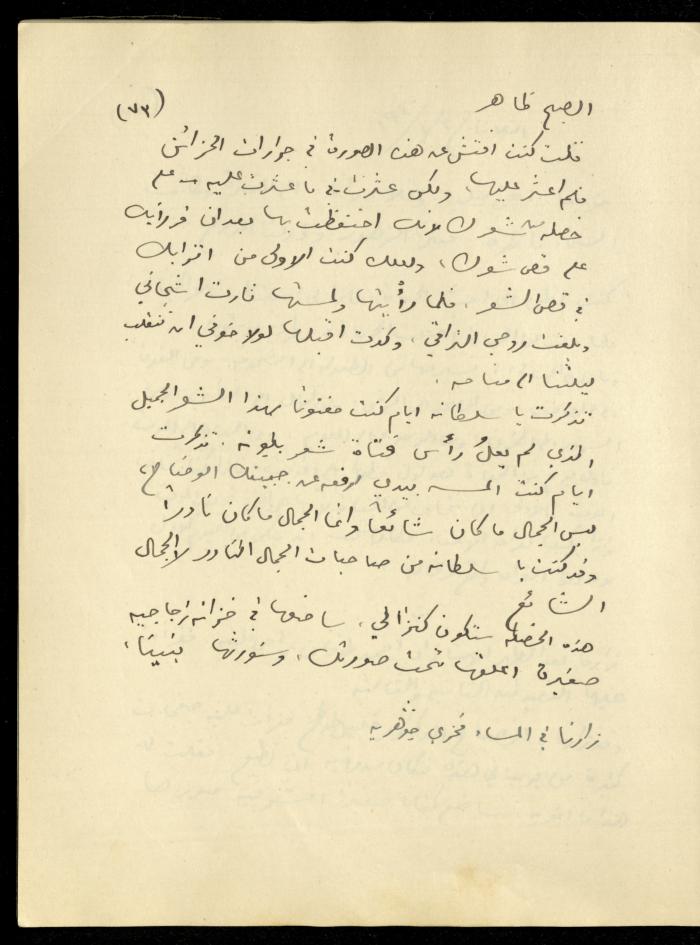 الصبح ظاهر (٧٣)
قلت كنت افتش عن هذه الصورة في جوارات الخزائن
فلم اعثر عليها، ولكن عثرت في ما عثرت عليه — على
خصلة من شعرك لانك احتفظت بها بعد ان قر رأيك
على قص شعرك، ولعلك كنت الاولى من اترابك
في قص الشعر. فلما رأيتها ولمستها ثارت اشجاني
وبلغت روحي التراقي، وكدت اقبلها لولا خوفي ان تنقلب
ليلتنا الى مناحة.
تذكرت يا سلطانه ايام كنت مفتونا بهذا الشعر الجميل
الذي لم يعلُ رأس فتاة شعر بلونه. تذكرت
ايام كنت المسه بيدي لارفعه عن جبينك الوضاح،
ليس الجمال ما كان شائعا وانما الجمال ما كان نادرا
وقد كنت يا سلطانه من صاحبات الجمال النادر لا الجمال
الشائع
هذه الخصلة ستكون كنزا لي، ساضعها في خزانة زجاجيه
صغيرة اعلقها تحت صورتك، وسنورثها بنينا،
زارنا في المساء فخري جوهريه